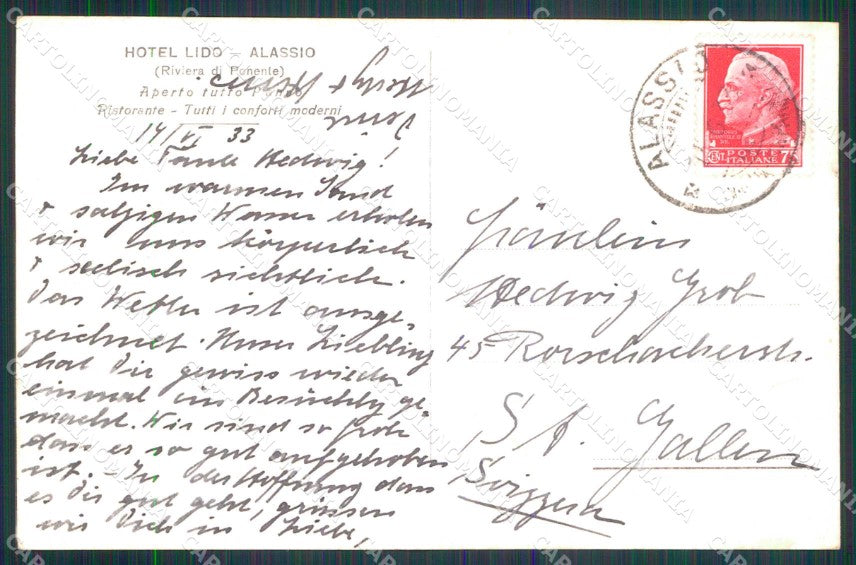 HOTEL LIDO - ALASSIO
(Riviera di Ponente)
Aperto tutto l'anno
Ristorante - Tutti i conforti moderni
14/VI 33
Liebe Tante Hedwig!
Im warmen Sand
+ salzigen Wasser erholen
wir uns körperlich
+ seelisch sichtlich.
Das Wetter ist ausge-
zeichnet. Unser Liebling
hat Dir gewiss wieder
einmal ein Besüchly ge-
macht. Wir sind so froh
dass es so gut aufgehoben
ist. - In der Hoffnung dass
es Dir gut geht, grüssen
wir Dich in Liebe,
ALASSIO
POSTE
ITALIANE
Fräulein
Hedwig Grob
45 Rorschacherstr.
St. Gallen
Svizzera
CARTOLINOMANIA